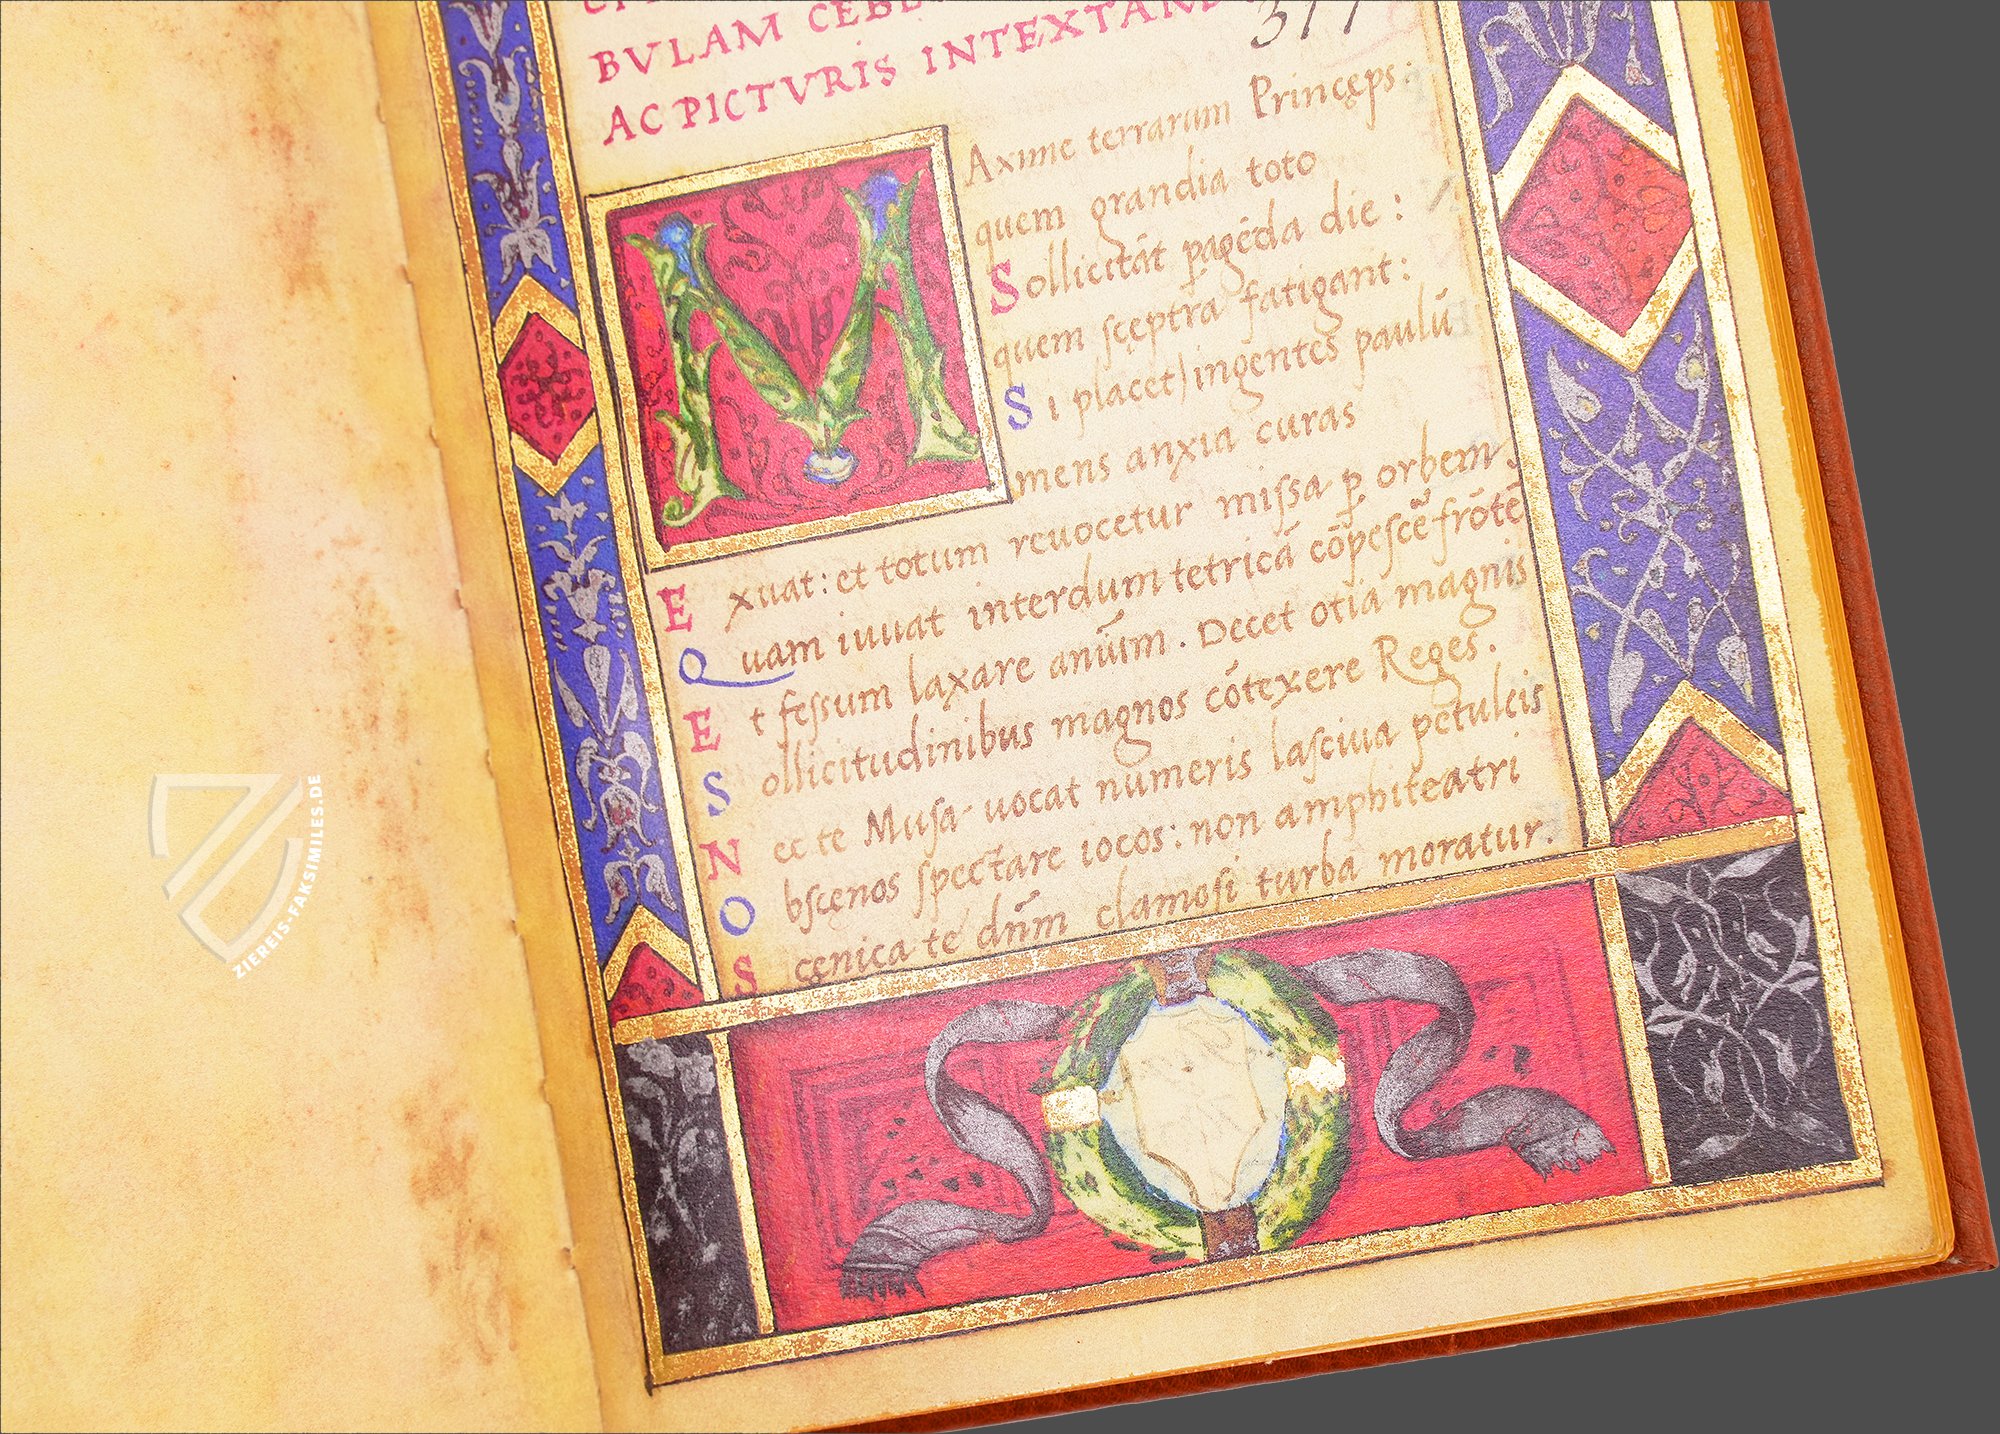 BVLAM CEBE
AC PICTVRIS INTEXTAM
377
MAxime terrarum Princęps:
quem grandia toto
Sollicitāt ꝑagēda die:
quem sceptra fatigant:
Si placet) ingentes paulū
mens anxia curas
Exuat: et totum reuocetur missa ꝑ orbem.
Quam iuuat interdum tetricā cōpescẽ frōtē
Et fessum laxare anīum. Decet otia magnis
Sollicitudinibus magnos cōtexere Reges.
Nec te Musa uocat numeris lasciua petulcis
Obscęnos spectare iocos: non amphiteatri
Scęnica te dn̄m clamosi turba moratur.
ZIEREIS-FAKSIMILES.DE